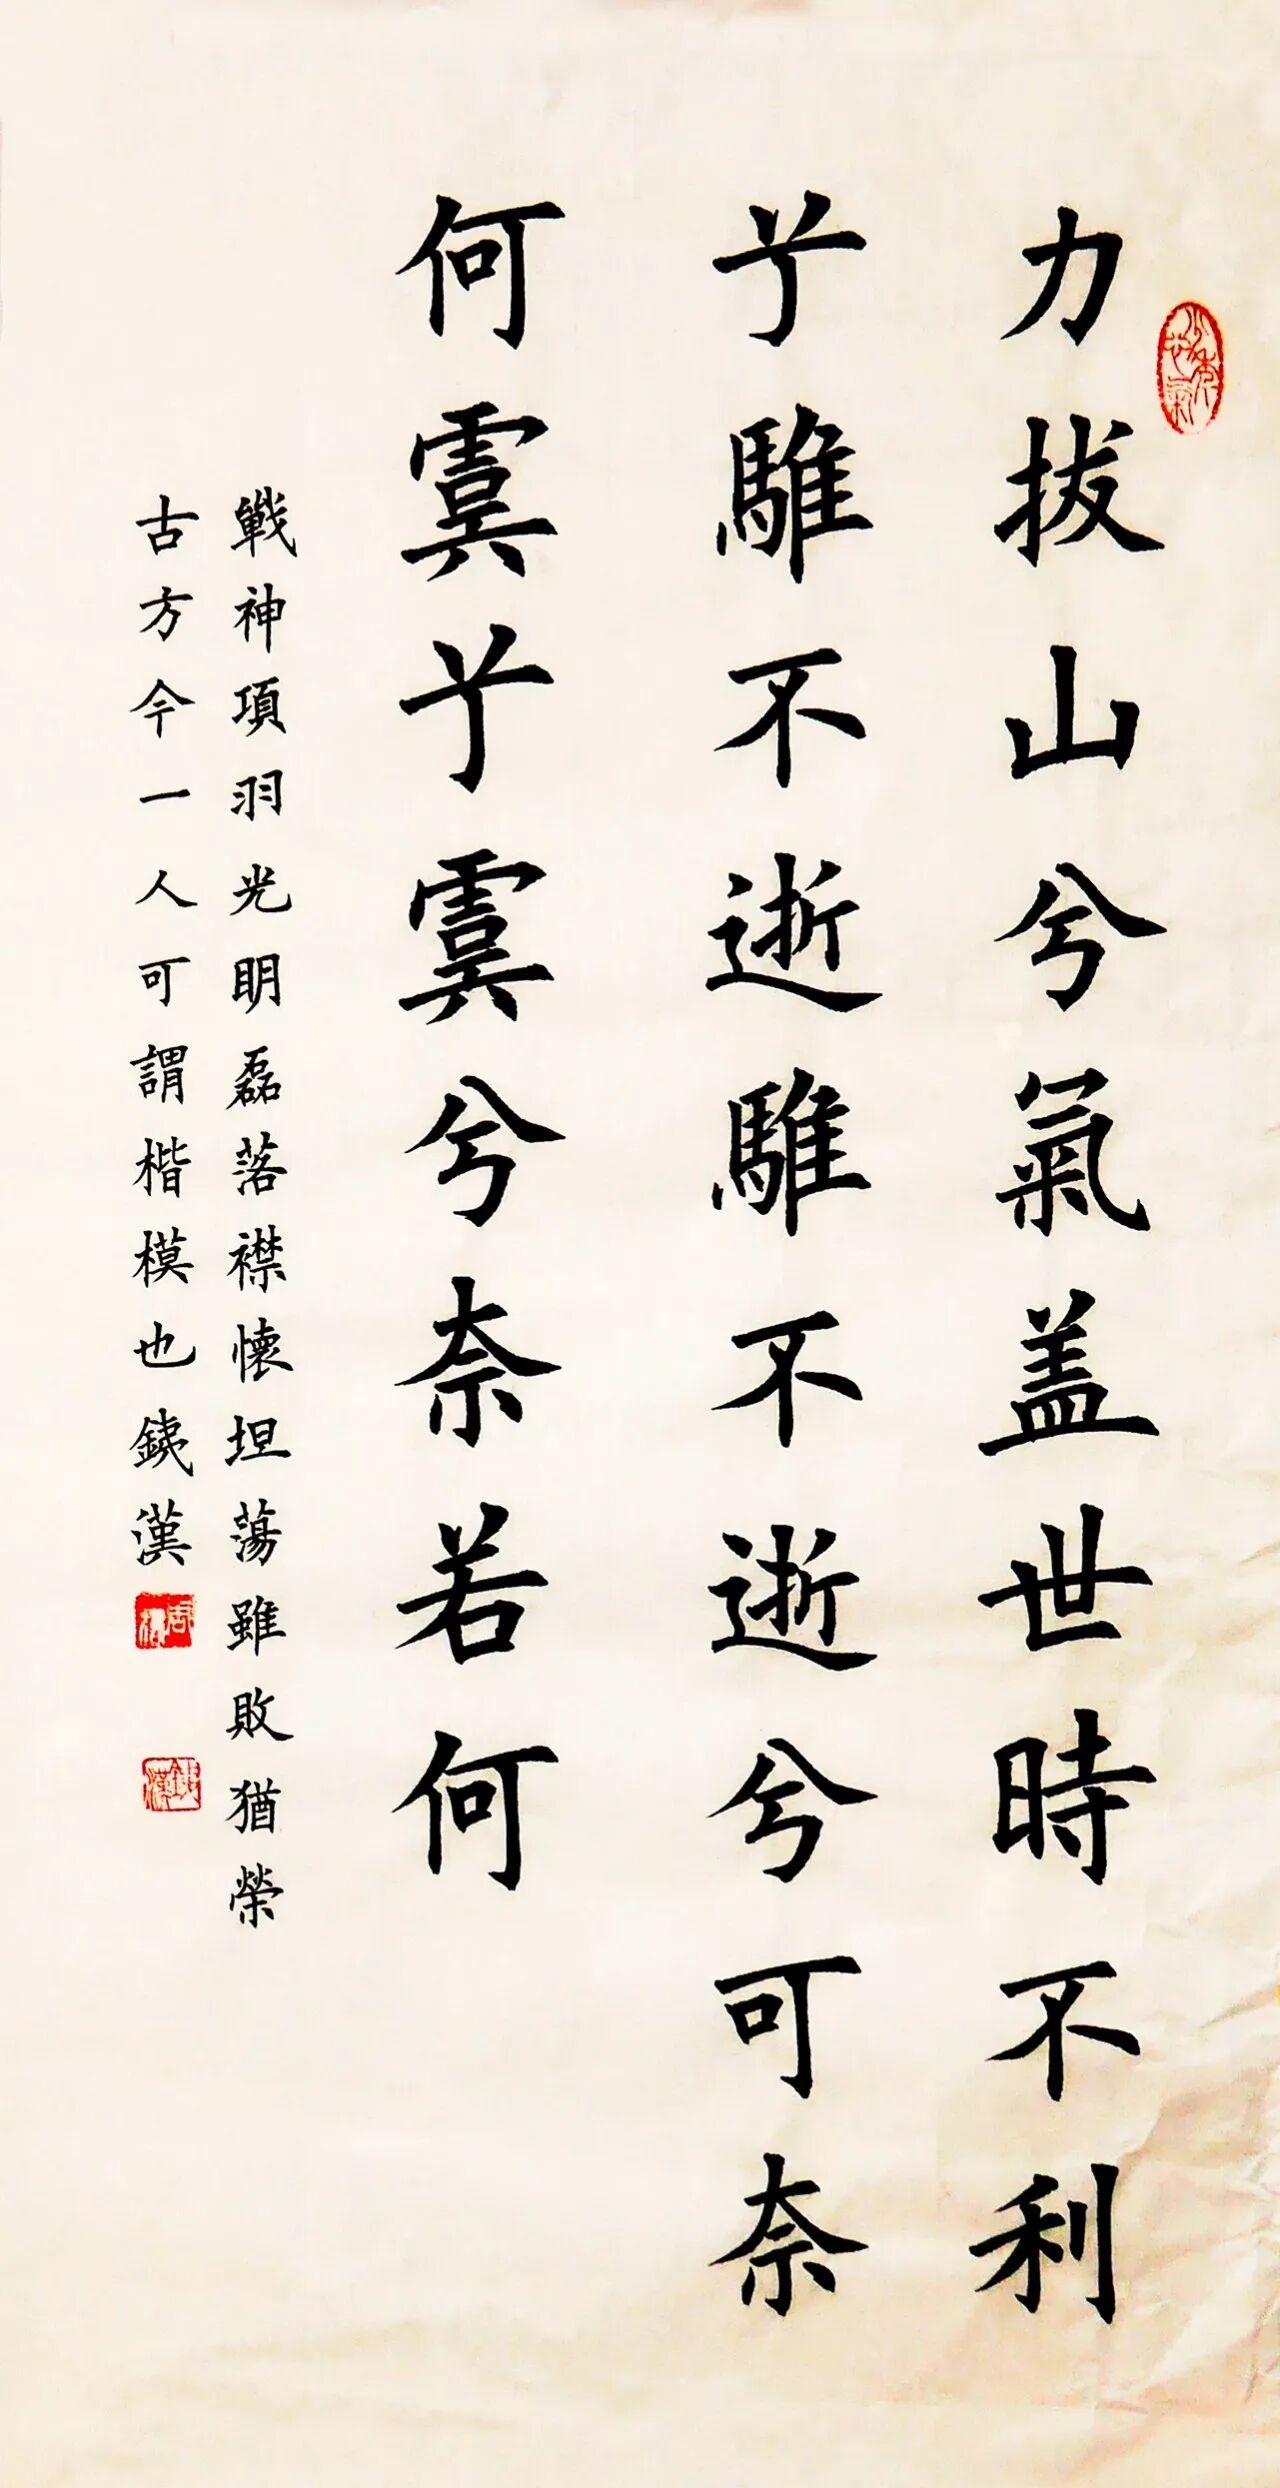 力拔山兮氣盖世時不利
兮騅不逝騅不逝兮可奈
何虞兮虞兮奈若何
戰神項羽光明磊落襟懷坦蕩雖敗猶榮
古方今一人可謂楷模也銕漢
銕漢